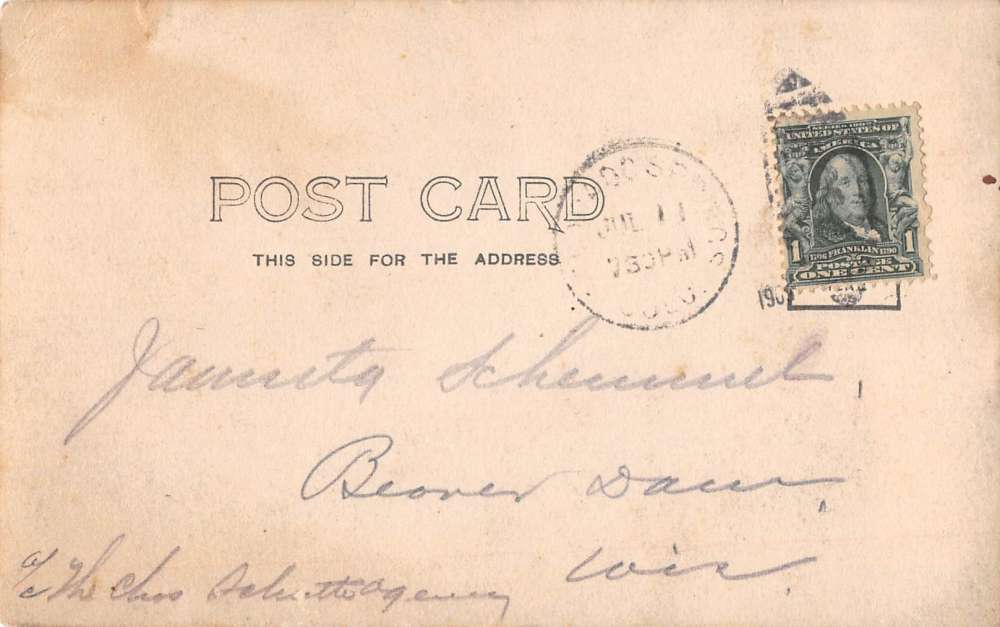 POST CARD
THIS SIDE FOR THE ADDRESS
JUL 11
730 PM
COLO.
190
SERIES 1902
UNITED STATES OF
AMERICA
1706 FRANKLIN 1790
1 POSTAGE 1
ONE CENT
Jaunita Schemmel,
Beaver Dam,
Wis
c/o The Chas Schutte Agency